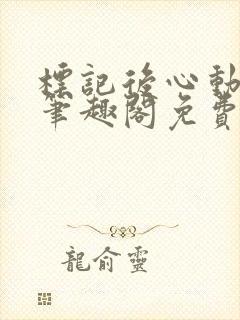 標記後心動
筆趣閣免費
龍俞靈